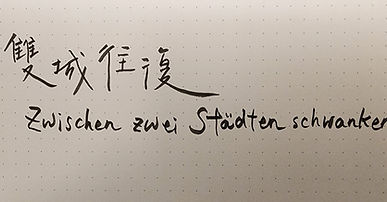 雙城往復
Zwischen zwei Städten schwanken